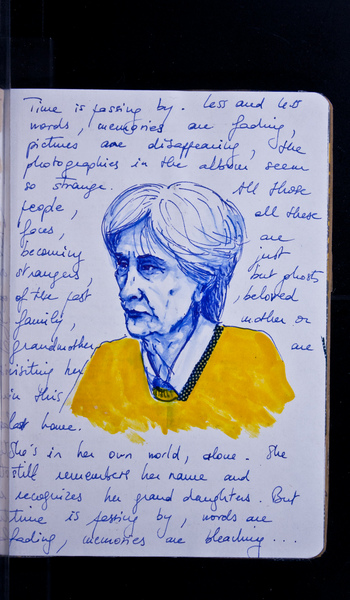 Time is passing by. Less and less
words, memories are fading,
pictures are disappearing, the
photographies in the album seem
so strange. All those
people, all these
faces, are
becoming just
strangers, but ghosts
of the past, beloved
family, mother or
grandmother are
visiting her
in this
last home.
She's in her own world, alone. She
still remembers her name and
recognizes her grand daughters. But
time is passing by, words are
fading, memories are bleaching...